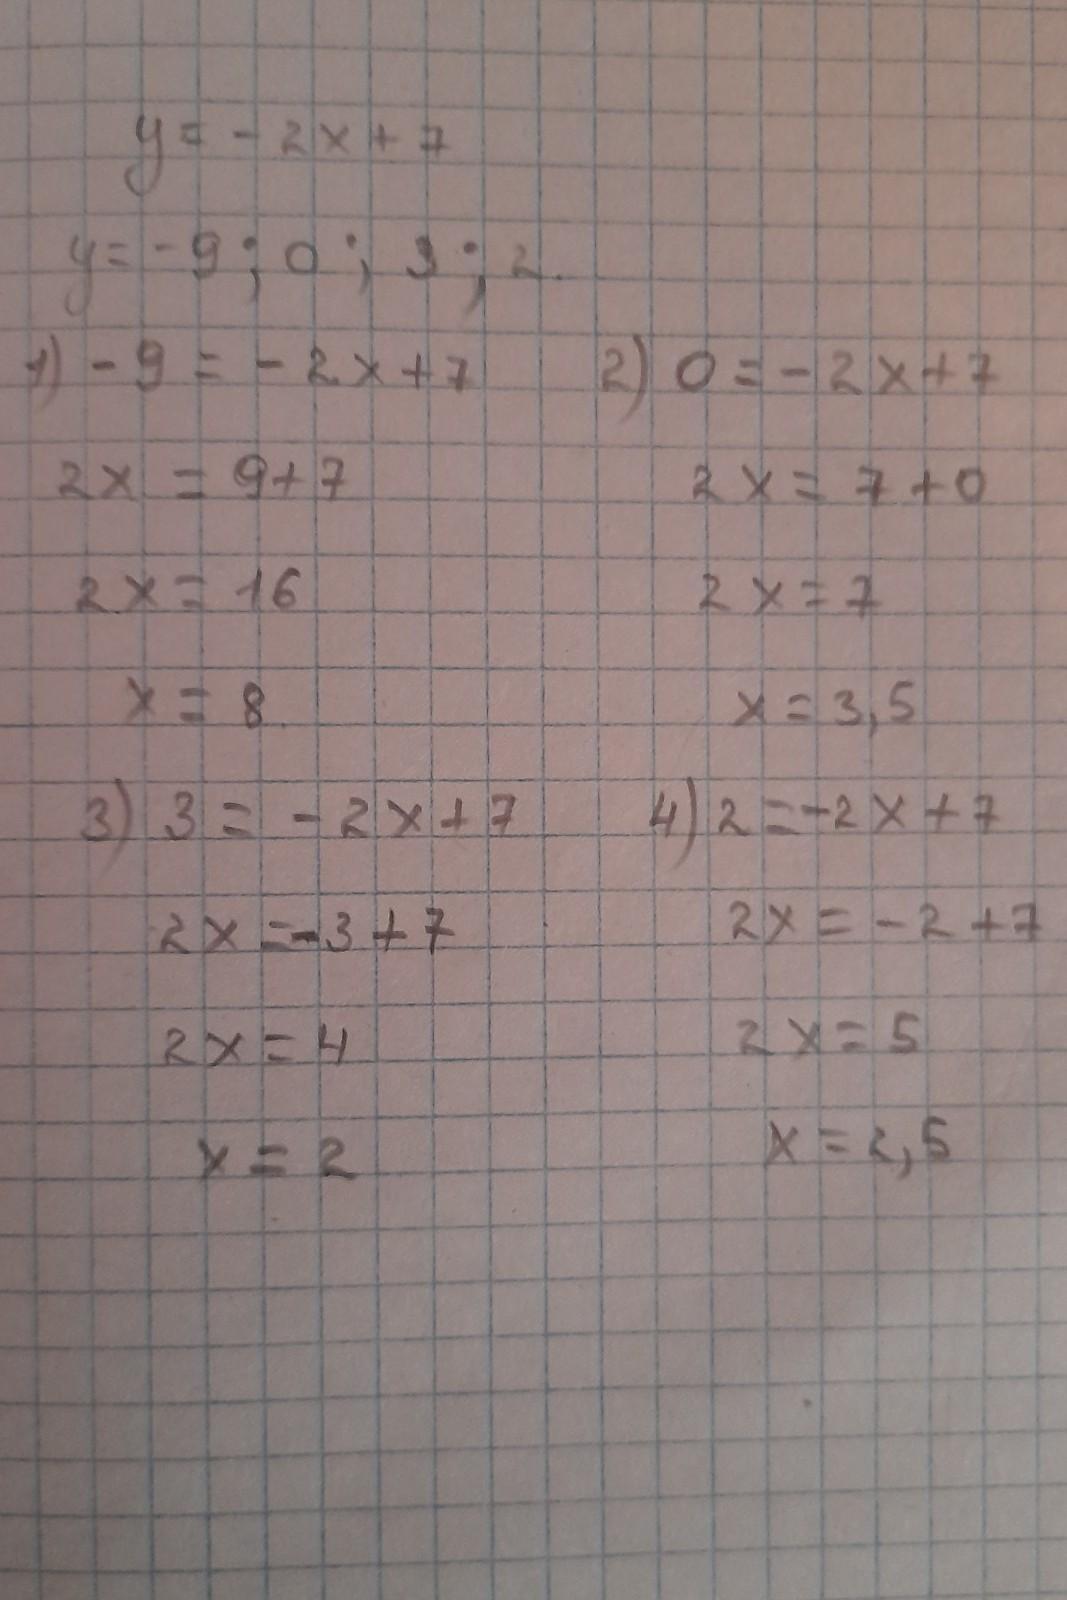 y = - 2x + 7
y = -9 ; 0 ; 3 ; 2.
1) - 9 = - 2x + 7
2x = 9+7
2x = 16
x = 8
2) 0 = - 2x + 7
2x = 7 + 0
2x = 7
x = 3,5
3) 3 = - 2x + 7
2x = -3 + 7
2x = 4
x = 2
4) 2 = -2x + 7
2x = - 2 + 7
2x = 5
x = 2,5